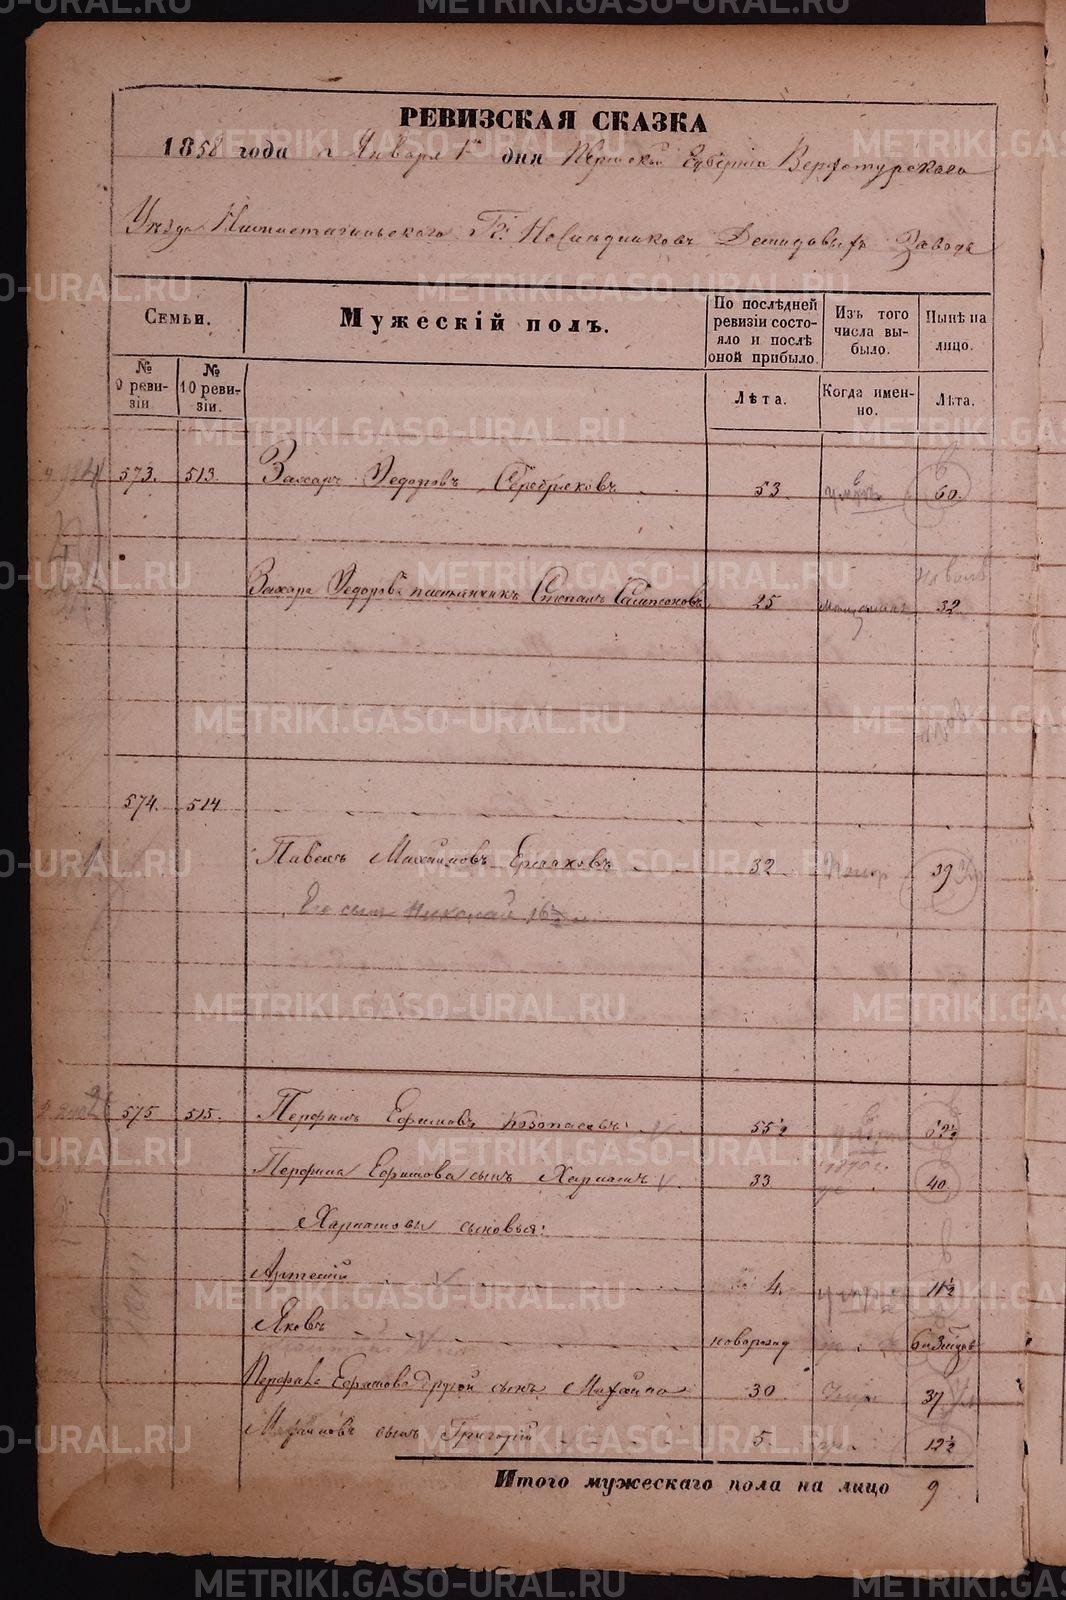 РЕВИЗСКАЯ СКАЗКА
1858 года Января 1 дня Пермской Губернiи Верхотурскаго
Уѣзда Нижнетагильскаго Гг. Наслѣдниковъ Демидовыхъ Завода
Семьи.
Мужескiй полъ.
По послѣдней ревизiи состояло и послѣ оной прибыло.
Изъ того числа выбыло.
Нынѣ на лицо.
№ 9 ревизiи.
№ 10 ревизiи.
Лѣта.
Когда именно.
Лѣта.
573. 513. Захаръ Ѳедоровъ Серебряковъ 53 60.
Захара Ѳедорова Степанъ Сампсоновъ 25 32
574. 514
Павелъ Махаиловъ Ермаковъ 32 39
Его сынъ Николай 16
575 515. Перфилъ Ефимовъ 55½ 62½
Перфила Ефимова сынъ Харламъ 33 40
Харламовы сыновья:
Артемiй 4. 11½
Яковъ новорожд
Перфила Ефимова другой сынъ Михайло 30 37
сынъ Григорiй 5. 12½
Итого мужескаго пола на лицо 9
METRIKI.GASO-URAL.RU